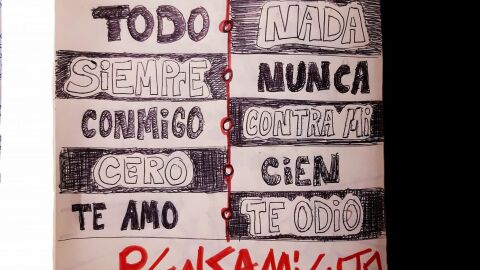 TODO NADA
SiEMPrE NUNCA
CONMiGO CONTRA Mi
CERO CiEN
TE AMO TE ODiO